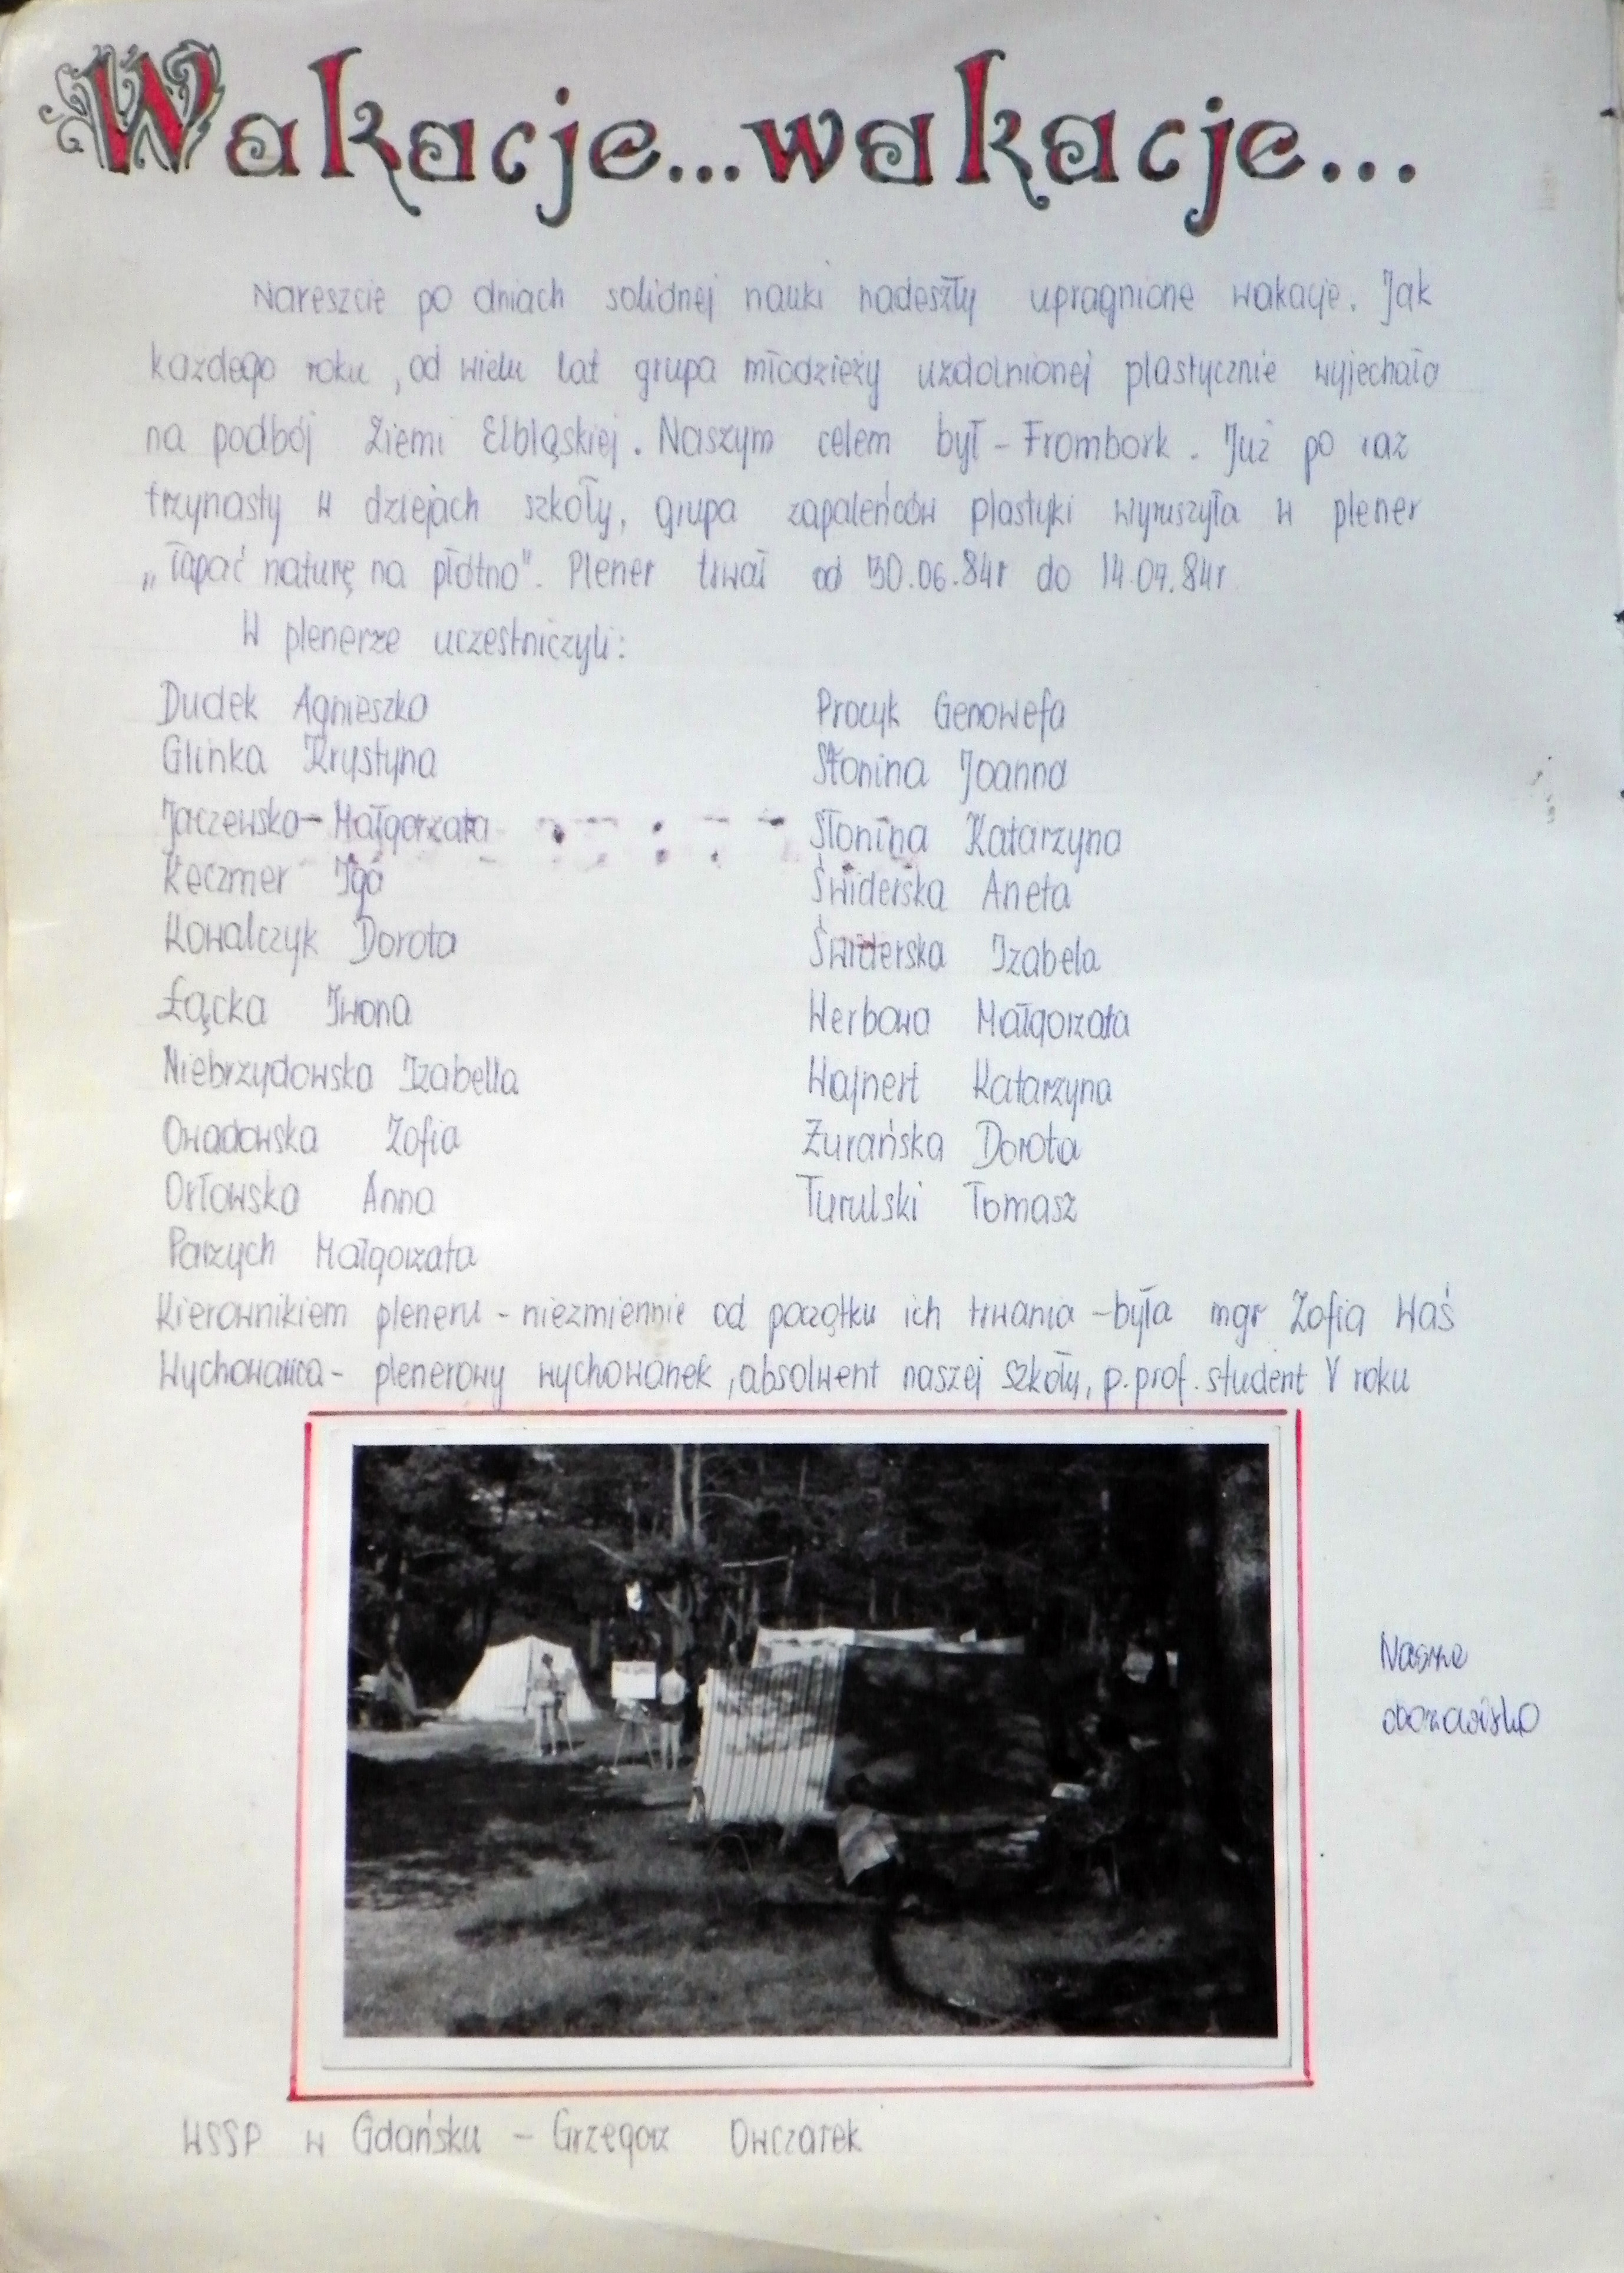 Wakacje...wakacje...
Nareszcie po dniach solidnej nauki nadeszły upragnione wakacje. Jak
każdego roku, od wielu lat grupa młodzieży uzdolnionej plastycznie wyjechała
na podbój Ziemi Elbląskiej. Naszym celem był - Frombork. Już po raz
trzynasty w dziejach szkoły, grupa zapaleńców plastyki wyruszyła w plener
„łapać naturę na płótno". Plener trwał od 30.06.84r do 14.07.84r
W plenerze uczestniczyli:
Dudek Agnieszka
Glinka Krystyna
Jaczewska - Małgorzata
Keczmer Iga
Kowalczyk Dorota
Łącka Iwona
Niebrzydowska Izabella
Owadowska Zofia
Orłowska Anna
Parzych Małgorzata
Procyk Genowefa
Słonina Joanna
Słonina Katarzyna
Świderska Aneta
Świderska Izabela
Werbowa Małgorzata
Wajnert Katarzyna
Żurańska Dorota
Turulski Tomasz
Kierownikiem pleneru - niezmiennie od początku ich trwania - była mgr Zofia Waś
Wychowawca - plenerowy wychowanek, absolwent naszej szkoły, p. prof. student V roku
Nasze
obozowisko
WSSP w Gdańsku - Grzegorz Owczarek